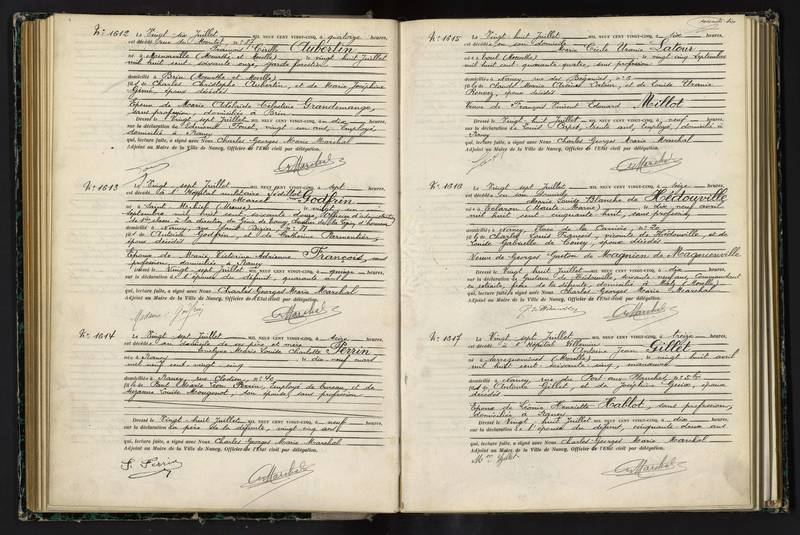 N° 1612 Le Vingt six Juillet MIL NEUF CENT VINGT-CINQ, à quatorze heures,
est décédé rue du Montet, n° 87
François Camille Aubertin
né à (Meurthe et Moselle), le vingt huit Juillet
mil huit cent soixante onze, garde forestier
domicilié à Brin (Meurthe et Moselle)
fils de Charles Christophe Aubertin, et de Marie Joséphine
époux décédés
Epoux de Marie Adélaïde Célestine Grandemange,
sans profession, domiciliée à Brin
Dressé le Vingt sept Juillet MIL NEUF CENT VINGT-CINQ, à dix heures,
sur la déclaration de vingt un ans, employé
domicilié à Nancy
qui, lecture faite, a signé avec Nous Charles Georges Marie Marchal
Adjoint au Maire de la Ville de Nancy, Officier de l'Etat civil par délégation.
Marchal
N° 1613 Le Vingt sept Juillet MIL NEUF CENT VINGT-CINQ, à sept heures,
est décédé à l'Hôpital militaire Sédillot
Marcel Godfrin
né à Saint Mihiel (Meuse), le vingt un
Septembre mil huit cent soixante douze, Officier d'administration
domicilié à Nancy, rue
fils de Godfrin, et de Catherine Parmentier,
époux décédés
Epoux de Marie Victorine Adrienne François, sans
profession, domiciliée à Nancy
Dressé le Vingt sept Juillet MIL NEUF CENT VINGT-CINQ, à quinze heures,
sur la déclaration de l'épouse du défunt, quarante ans
qui, lecture faite, a signé avec Nous Charles Georges Marie Marchal
Adjoint au Maire de la Ville de Nancy, Officier de l'Etat civil par délégation.
Marchal
N° 1614 Le Vingt sept Juillet MIL NEUF CENT VINGT-CINQ, à seize heures,
est décédée au domicile de ses père et mère
Louise Charlotte Perrin
née à Nancy, le dix neuf mars
mil neuf cent vingt cinq
domiciliée à Nancy, rue Clodion, n° 40
fille de Paul Charles Léon Perrin, employé de bureau, et de
Suzanne Louise Mougenot, son épouse, sans profession
Dressé le Vingt huit Juillet MIL NEUF CENT VINGT-CINQ, à neuf heures,
sur la déclaration du père de la défunte, vingt cinq ans
qui, lecture faite, a signé avec Nous Charles Georges Marie Marchal
Adjoint au Maire de la Ville de Nancy, Officier de l'Etat civil par délégation.
Perrin
Marchal
N° 1615 Le Vingt huit Juillet MIL NEUF CENT VINGT-CINQ, à six heures,
est décédée en son domicile
Marie Cécile Uranie Latour
née à Toul (Meurthe), le vingt cinq Septembre
mil huit cent quarante quatre, sans profession
domiciliée à Nancy, rue des
fille de Claude Marie Clément Latour, et de Louise Uranie
époux décédés
Veuve de François Vincent Edouard Millot
Dressé le Vingt huit Juillet MIL NEUF CENT VINGT-CINQ, à neuf heures,
sur la déclaration de Louis trente ans, employé, domicilié à
Nancy
qui, lecture faite, a signé avec Nous Charles Georges Marie Marchal
Adjoint au Maire de la Ville de Nancy, Officier de l'Etat civil par délégation.
Marchal
N° 1616 Le Vingt sept Juillet MIL NEUF CENT VINGT-CINQ, à seize heures,
est décédée en son domicile
Marie Louise Blanche de Hédouville
née à Eclaron (Haute Marne), le dix neuf avril
mil huit cent cinquante huit, sans profession
domiciliée à Nancy, Place de la Carrière, n° 20
fille de Charles Louis François, vicomte de Hédouville, et de
Louise Gabrielle de Coucy, époux décédés
Veuve de Georges Gaston de Magnien de Magnienville
Dressé le Vingt huit Juillet MIL NEUF CENT VINGT-CINQ, à dix heures,
sur la déclaration de Gustave de Hédouville, soixante neuf ans, Commandant
en retraite, frère de la défunte, domicilié à Metz (Moselle)
qui, lecture faite, a signé avec Nous Charles Georges Marie Marchal
Adjoint au Maire de la Ville de Nancy, Officier de l'Etat civil par délégation.
Marchal
N° 1617 Le Vingt sept Juillet MIL NEUF CENT VINGT-CINQ, à treize heures,
est décédé à l'Hôpital Villemin
Antoine Jean Gillet
né à (Moselle), le vingt huit avril
mil huit cent soixante cinq, manœuvre
domicilié à Nancy, rue du Port aux Planches, n° 5 bis
fils de Antoine Gillet, et de Joséphine époux
décédés
Epoux de Léonie Henriette Hablot, sans profession,
domiciliée à
Dressé le Vingt huit Juillet MIL NEUF CENT VINGT-CINQ, à dix heures,
sur la déclaration de l'épouse du défunt, cinquante deux ans
qui, lecture faite, a signé avec Nous Charles Georges Marie Marchal
Adjoint au Maire de la Ville de Nancy, Officier de l'Etat civil par délégation.
Mme Gillet
Marchal